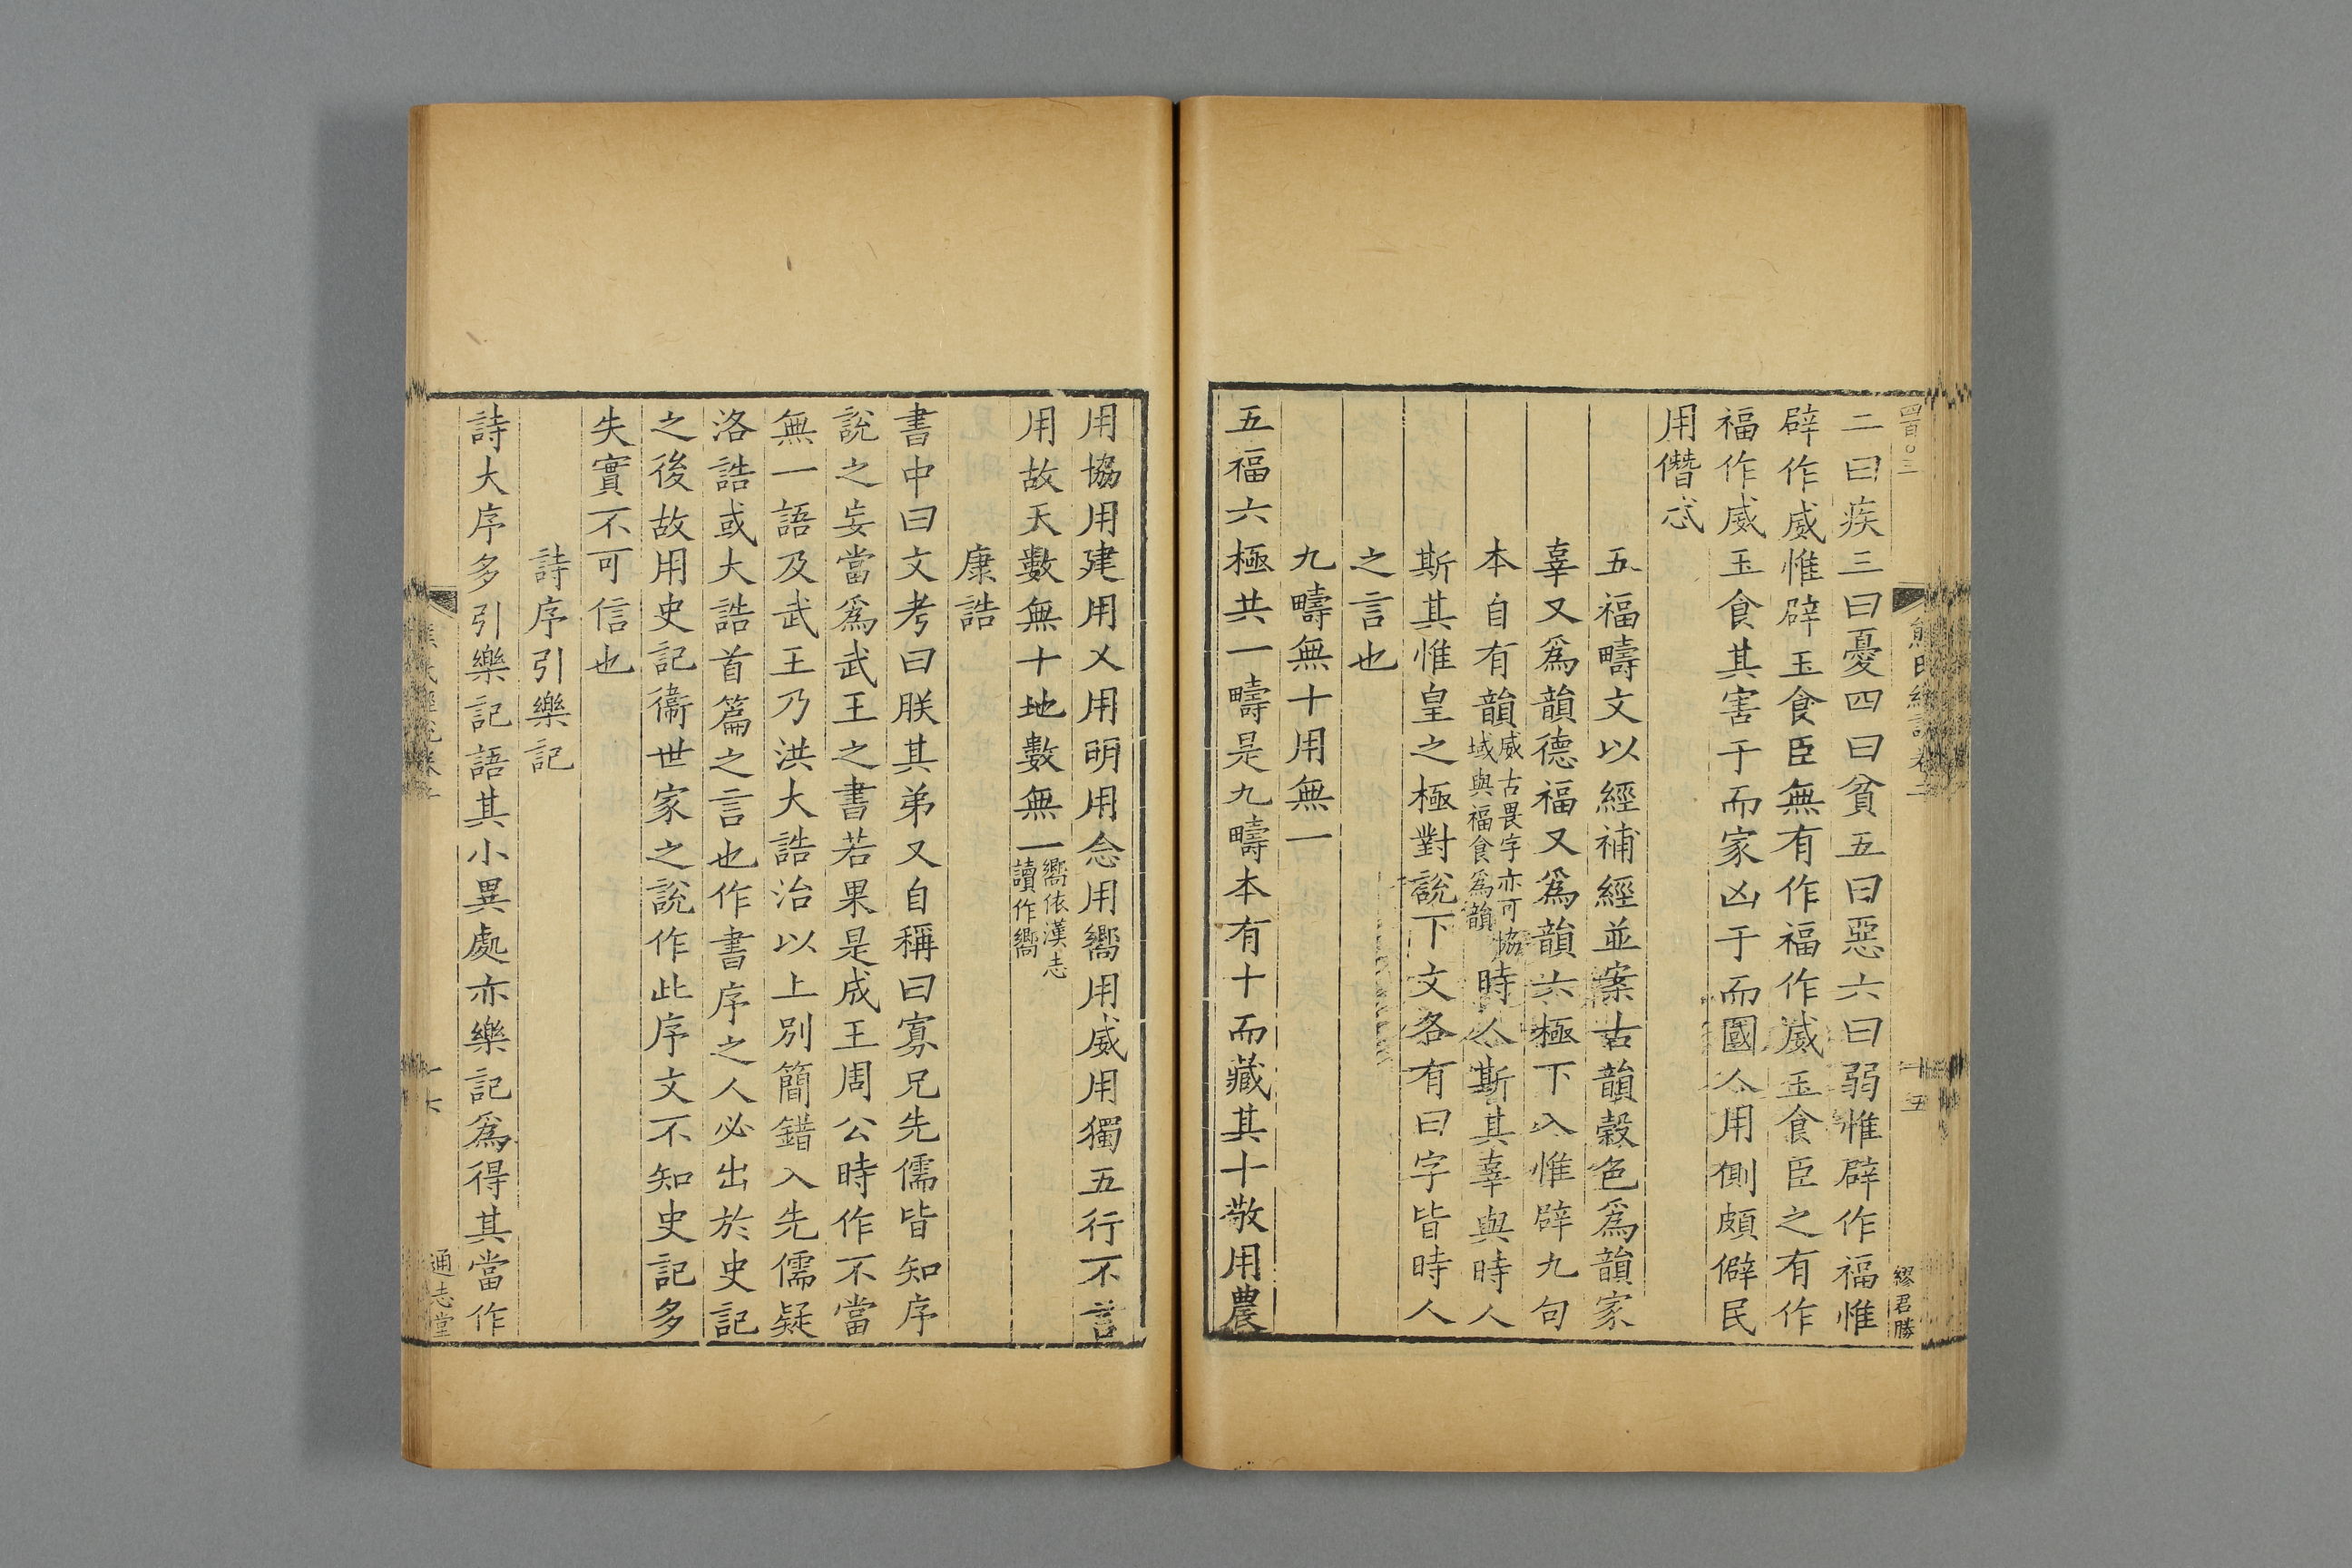 四百○三
熊氏經說卷二
十五
繆君勝
二曰疾三曰憂四曰貧五曰惡六曰弱惟辟作福惟
辟作威惟辟玉食臣無有作福作威玉食臣之有作
福作威玉食其害于而家凶于而國人用側頗僻民
用僭忒
五福疇文以經補經並案古韻穀色爲韻家
辜又爲韻德福又爲韻六極下入惟辟九句
本自有韻威古畏字亦可協
域與福食爲韻時人斯其辜與時人
斯其惟皇之極對說下文各有曰字皆時人
之言也
九疇無十用無一
五福六極共一疇是九疇本有十而藏其十敬用農
用協用建用乂用明用念用嚮用威用獨五行不言
用故天數無十地數無一嚮依漢志
讀作嚮
康誥
書中曰文考曰朕其弟又自稱曰寡兄先儒皆知序
說之妄當爲武王之書若果是成王周公時作不當
無一語及武王乃洪大誥治以上別簡錯入先儒疑
洛誥或大誥首篇之言也作書序之人必出於史記
之後故用史記衞世家之說作此序文不知史記多
失實不可信也
詩序引樂記
詩大序多引樂記語其小異處亦樂記爲得其當作
十六
通志堂